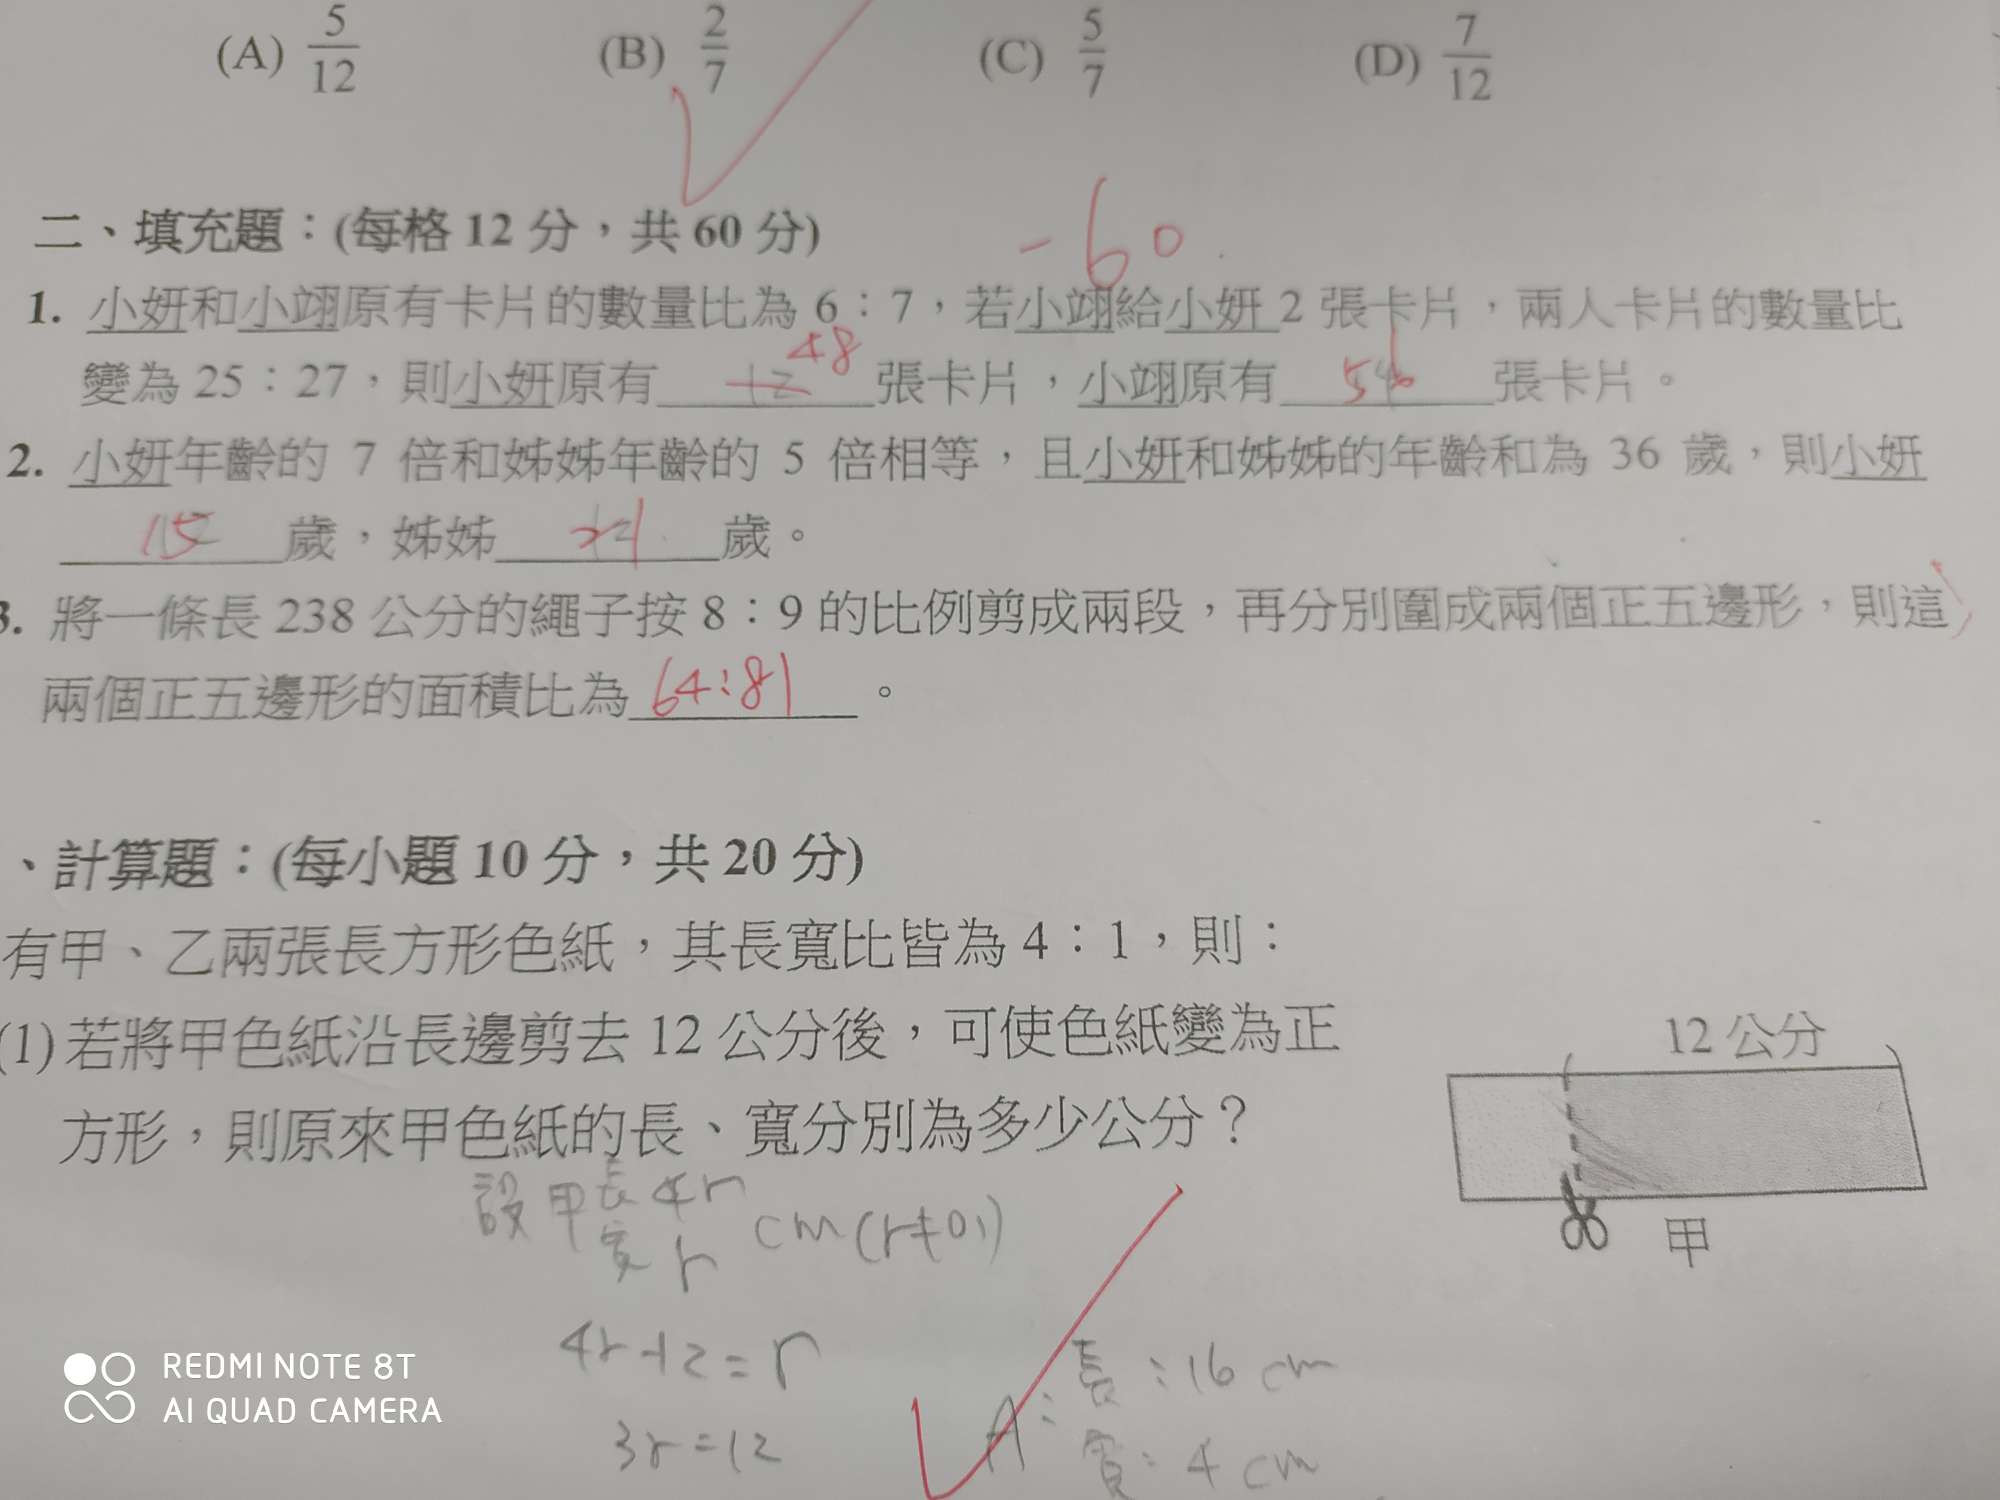 (A) 5/12 (B) 2/7 (C) 5/7 (D) 7/12
二、填充題：(每格 12 分，共 60 分)
-60
1. 小妍和小翊原有卡片的數量比為 6：7，若小翊給小妍 2 張卡片，兩人卡片的數量比
變為 25：27，則小妍原有 12 48 張卡片，小翊原有 56 張卡片。
2. 小妍年齡的 7 倍和姊姊年齡的 5 倍相等，且小妍和姊姊的年齡和為 36 歲，則小妍
15 歲，姊姊 21 歲。
3. 將一條長 238 公分的繩子按 8：9 的比例剪成兩段，再分別圍成兩個正五邊形，則這
兩個正五邊形的面積比為 64:81 。
、計算題：(每小題 10 分，共 20 分)
有甲、乙兩張長方形色紙，其長寬比皆為 4：1，則：
(1) 若將甲色紙沿長邊剪去 12 公分後，可使色紙變為正
方形，則原來甲色紙的長、寬分別為多少公分？
12 公分
甲
設甲長 4r
寬 r cm (r≠0)
4r-12=r
3r=12
A: 長:16 cm
寬:4 cm
REDMI NOTE 8T
AI QUAD CAMERA